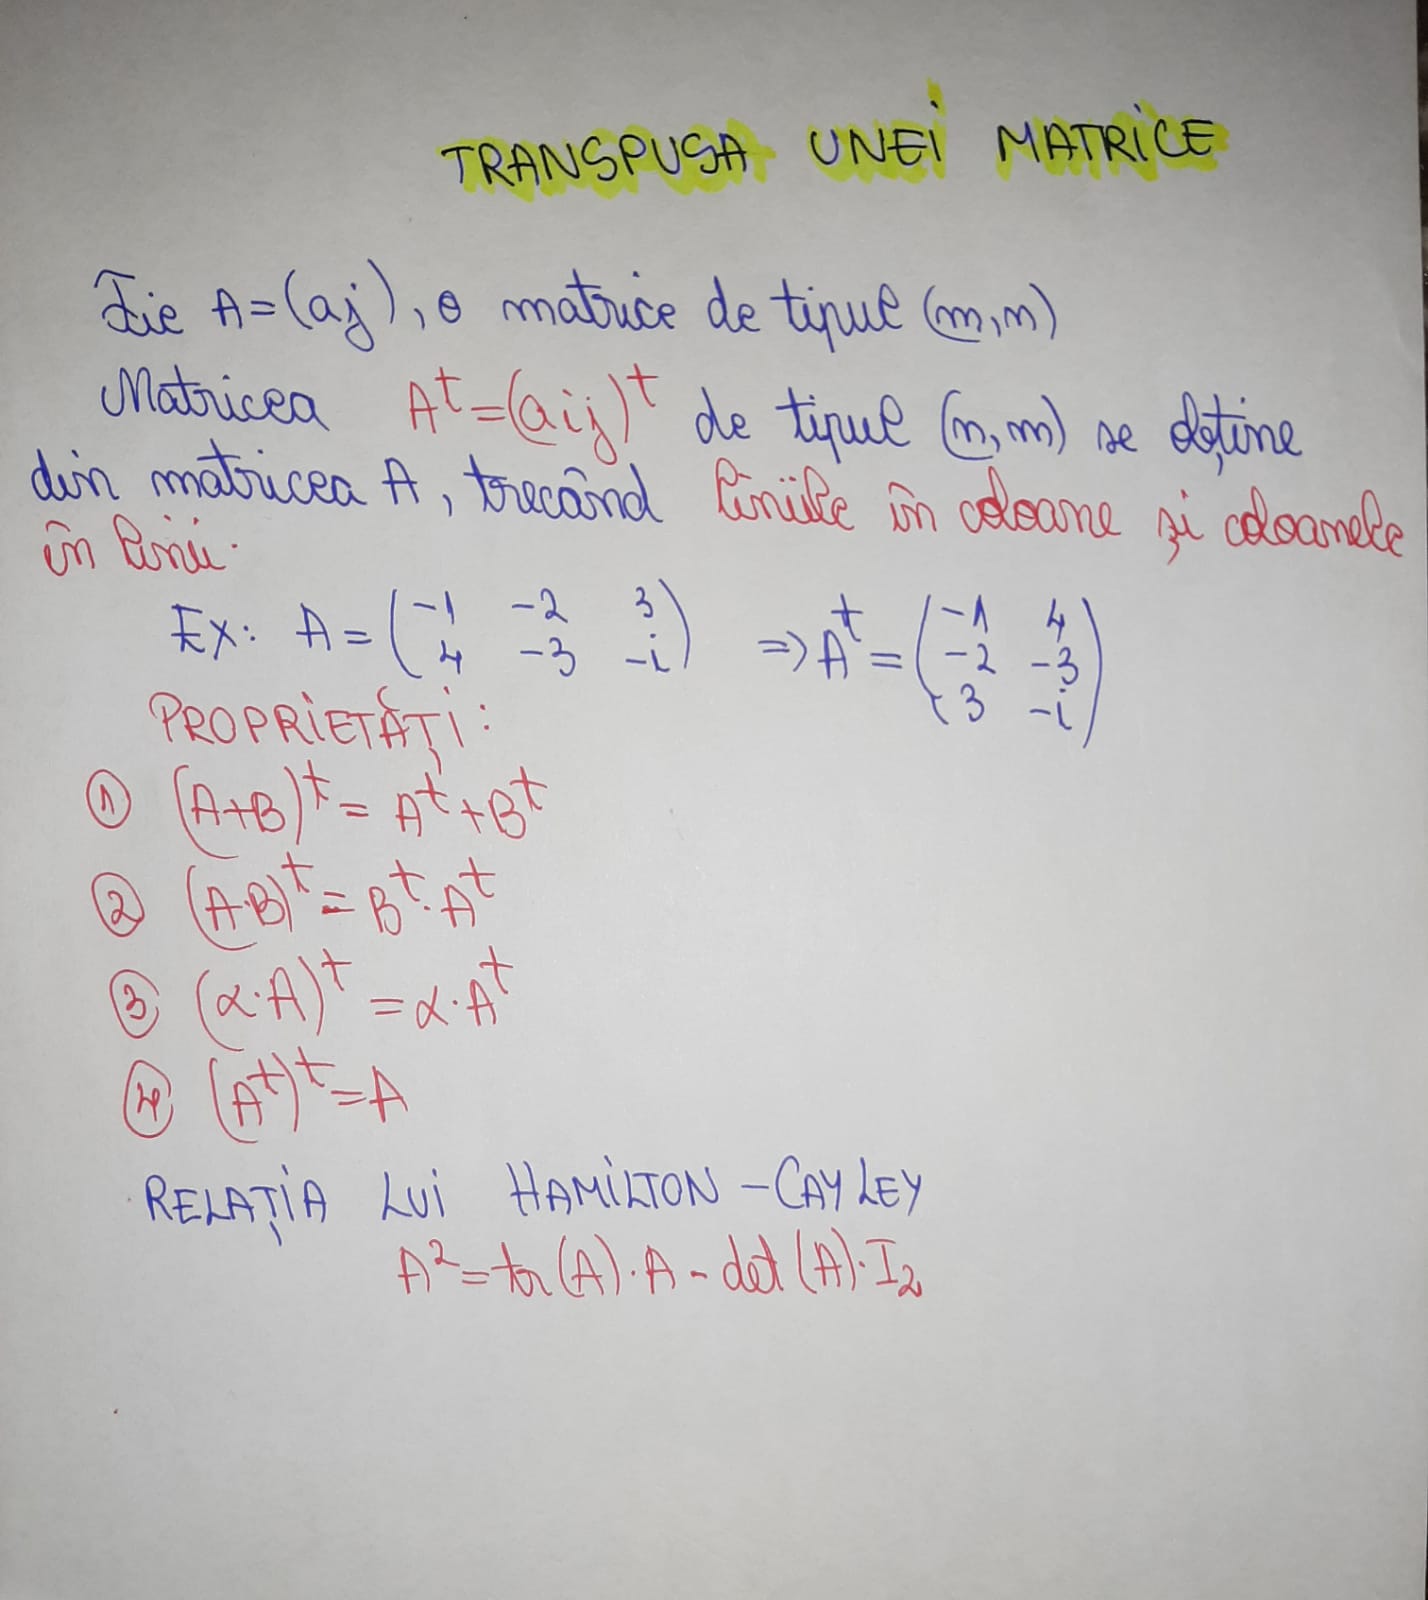 TRANSPUSA UNEI MATRICE
Fie A=(aj), o matrice de tipul (m,n)
Matricea A^t=(aij)^t de tipul (n,m) se obține
din matricea A, trecând liniile în coloane și coloanele
în linii.
Ex: A=(-1 -2 3 ; 4 -3 -i) => A^t=(-1 4 ; -2 -3 ; 3 -i)
PROPRIETĂȚI:
① (A+B)^t = A^t+B^t
② (A·B)^t = B^t·A^t
③ (α·A)^t = α·A^t
④ (A^t)^t=A
RELAȚIA LUI HAMILTON-CAYLEY
A²=tr(A)·A-det(A)·I₂